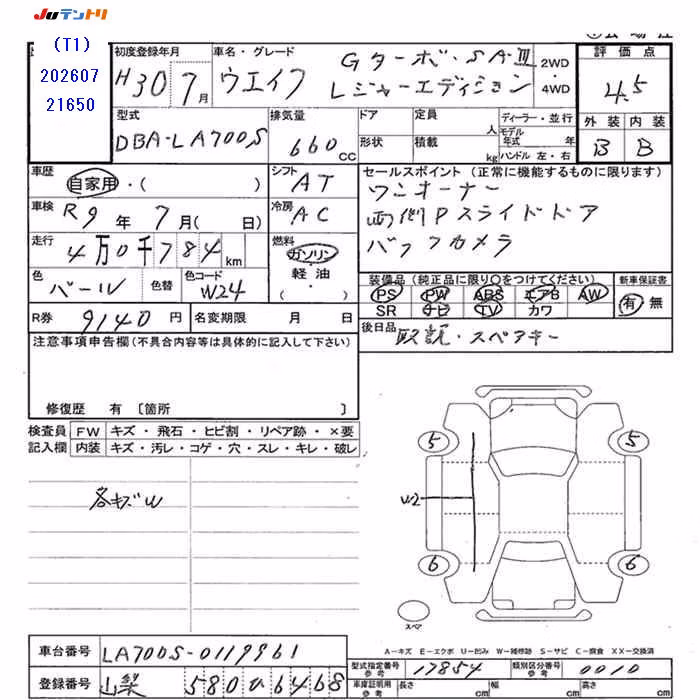 Juテントリ
(T1)
202607
21650
初度登録年月
H30 7月
車名・グレード
ウエイク
Gターボ・SAⅢ
レジャーエディション
2WD
・
4WD
評価点
4.5
外装 内装
B B
型式
DBA-LA700S
排気量
660 CC
ドア
形状
定員 人
積載 kg
ディーラー・並行
モデル年式 年
ハンドル 左・右
車歴 自家用・( )
シフト AT
車検 R9年 7月( 日)
冷房 AC
走行 4万0千784km
燃料 ガソリン
軽・油
・( )
色 パール 色替 色コード W24
R券 9140円 名変期限 月 日
セールスポイント(正常に機能するものに限ります)
ワンオーナー
両側Pスライドドア
バックカメラ
装備品(純正品に限り〇をつけてください)
PS PW ABS エアB AW
SR ナビ TV カワ
新車保証書
有 無
後日品 取説・スペアキー
注意事項申告欄(不具合内容等は具体的に記入して下さい)
修復歴 有 〔箇所 〕
検査員記入欄
FW キズ・飛石・ヒビ割・リペア跡・×要
内装 キズ・汚レ・コゲ・穴・スレ・キレ・破レ
各キズW
5 5
W2
6 6
スペア
A-キズ E-エクボ U-凹み W-補修跡 S-サビ C-腐食 XX-交換済
車台番号 LA700S-0119961
登録番号 山梨 580ひ6468
型式指定番号 参考 17854
類別区分番号 参考 0010
車庫証明用 参考 長さ cm 幅 cm 高さ cm